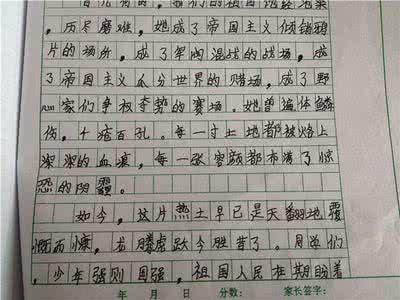 曾几何时，我们的祖国饱经沧桑
，历尽磨难，她成了帝国主义倾销鸦
片的场所，成了军阀混战的战场，成
了帝国主义瓜分世界的赌场，成了野
心家们争权夺势的赛场。她曾遍体鳞
伤，千疮百孔。每一寸土地都被烙上
深深的血痕，每一张容颜都布满了惊
恐的阴霾。
如今，这片热土早已是天翻地覆
慨而慷，龙腾虎跃今胜昔了。同学们
，少年强则国强，祖国人民在期盼着
年 月 日 分数： 家长签字：